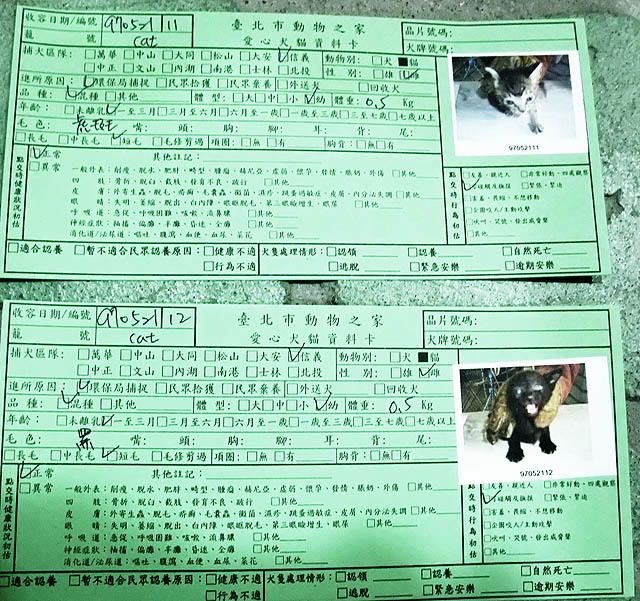 收容日期/編號 970521/11 臺北市動物之家 晶片號碼:
籠 號 cat 愛心犬貓資料卡 犬牌號碼:
捕犬區隊: □萬華 □中山 □大同 □松山 □大安 ☑信義 動物別: □犬 ■貓
□中正 □文山 □內湖 □南港 □士林 □北投 性 別: □雄 ☑雌
進所原因: ☑環保局捕捉 □民眾拾獲 □民眾棄養 □外送犬 □回收犬
品 種: ☑混種 □其他 體 型: □大 □中 □小 ☑幼 體重: 0.5 Kg
年齡: □未離乳 ☑一至三月 □三月至六月 □六月至一歲 □一歲至三歲 □三至七歲 □七歲以上
毛 色: 嘴: 頭: 胸: 腳: 耳: 背: 尾:
□長毛 □中長毛 ☑短毛 □毛修剪過 項圈: □無 □有 胸背: □無 □有
97052111
點交時健康狀況初估
☑正常 其他註記:
□異常 一般外表: 削瘦、脫水、肥胖、畸型、腫瘤、赫尼亞、虛弱、懷孕、發情、脹奶、外傷 □其他
四 肢: 骨折、脫臼、截肢、發育不良、跛行 □其他
皮 膚: 外寄生蟲、脫毛、疥癬、毛囊蟲、黴菌、濕疹、跳蚤過敏症、皮屑、內分泌失調 □其他
眼 睛: 失明、萎縮、脫出、白內障、眼眶脫毛、第三眼瞼增生、眼屎 □其他
呼 吸 道: 急促、呼吸困難、咳嗽、流鼻膿 □其他
神經症狀: 抽搐、偏癱、半癱、昏迷、全癱 □其他
消化道/泌尿道: 嘔吐、腹瀉、血便、血尿、菜花 □其他
點交時行為初估
□友善、親近人 □非常好動、四處觀察
☑碰觸反撫摸 □緊張、緊迫
□害羞、畏縮、不想移動
□企圖咬人/主動攻擊
□吠叫、哭號、發出威脅聲
□其他
□適合認養 □暫不適合民眾認養原因: □健康不適 犬隻處理情形: □認領 □認養 □自然死亡
□行為不適 □逃脫 □緊急安樂 □逾期安樂
收容日期/編號 970521/12 臺北市動物之家 晶片號碼:
籠 號 cat 愛心犬貓資料卡 犬牌號碼:
捕犬區隊: □萬華 □中山 □大同 □松山 □大安 ☑信義 動物別: □犬 ■貓
□中正 □文山 □內湖 □南港 □士林 □北投 性 別: ☑雄 □雌
進所原因: ☑環保局捕捉 □民眾拾獲 □民眾棄養 □外送犬 □回收犬
品 種: ☑混種 □其他 體 型: □大 □中 □小 ☑幼 體重: 0.5 Kg
年齡: □未離乳 ☑一至三月 □三月至六月 □六月至一歲 □一歲至三歲 □三至七歲 □七歲以上
毛 色: 黑 嘴: 頭: 胸: 腳: 耳: 背: 尾:
□長毛 □中長毛 ☑短毛 □毛修剪過 項圈: □無 □有 胸背: □無 □有
97052112
點交時健康狀況初估
☑正常 其他註記:
□異常 一般外表: 削瘦、脫水、肥胖、畸型、腫瘤、赫尼亞、虛弱、懷孕、發情、脹奶、外傷 □其他
四 肢: 骨折、脫臼、截肢、發育不良、跛行 □其他
皮 膚: 外寄生蟲、脫毛、疥癬、毛囊蟲、黴菌、濕疹、跳蚤過敏症、皮屑、內分泌失調 □其他
眼 睛: 失明、萎縮、脫出、白內障、眼眶脫毛、第三眼瞼增生、眼屎 □其他
呼 吸 道: 急促、呼吸困難、咳嗽、流鼻膿 □其他
神經症狀: 抽搐、偏癱、半癱、昏迷、全癱 □其他
消化道/泌尿道: 嘔吐、腹瀉、血便、血尿、菜花 □其他
點交時行為初估
□友善、親近人 □非常好動、四處觀察
☑碰觸反撫摸 □緊張、緊迫
□害羞、畏縮、不想移動
□企圖咬人/主動攻擊
□吠叫、哭號、發出威脅聲
□其他
□適合認養 □暫不適合民眾認養原因: □健康不適 犬隻處理情形: □認領 □認養 □自然死亡
□行為不適 □逃脫 □緊急安樂 □逾期安樂